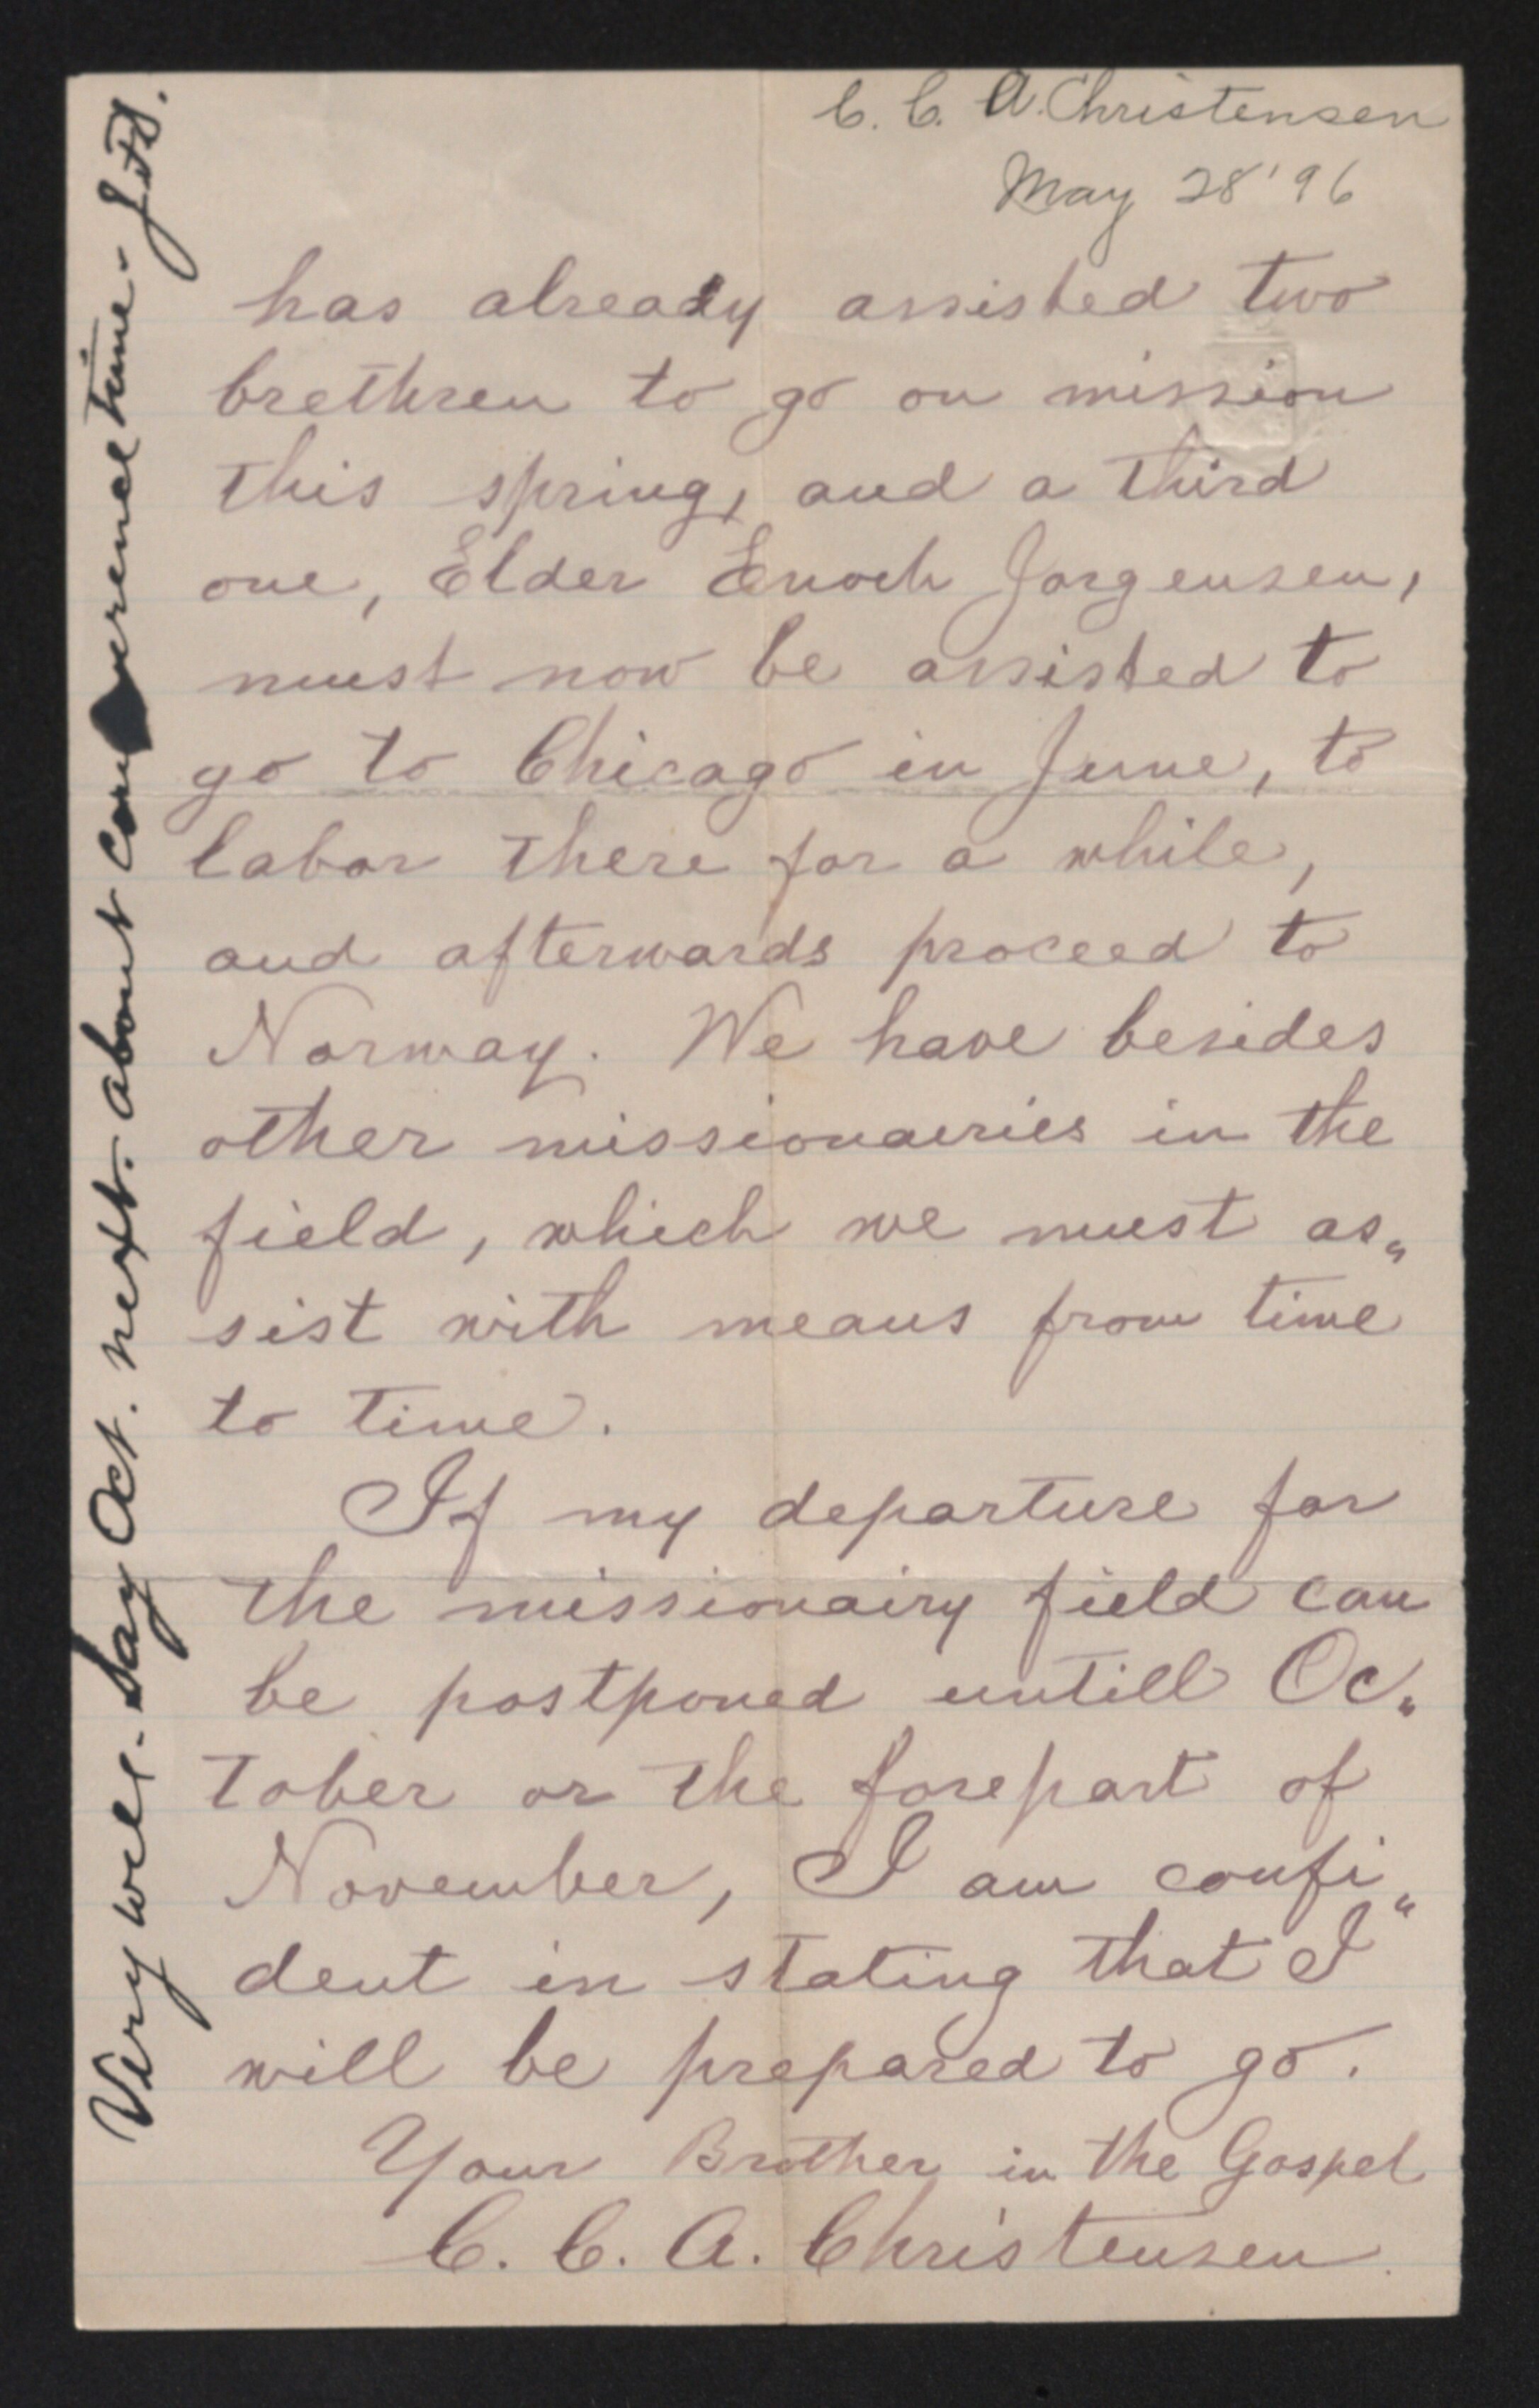 C. C. A. Christensen
May 28 '96
has already assisted two
brethren to go on mission
this spring, and a third
one, Elder Enoch Jorgensen,
must now be assisted to
go to Chicago in June, to
labor there for a while,
and afterwards proceed to
Norway. We have besides
other missionairies in the
field, which we must as„
sist with means from time
to time.
If my departure for
the missionairy field can
be postponed untill Oc„
tober or the forepart of
November, I am confi„
dent in stating that I
will be prepared to go.
Your Brother in the Gospel
C. C. A. Christensen.
Very well - Say Oct. next. about conference time - J.F.S.